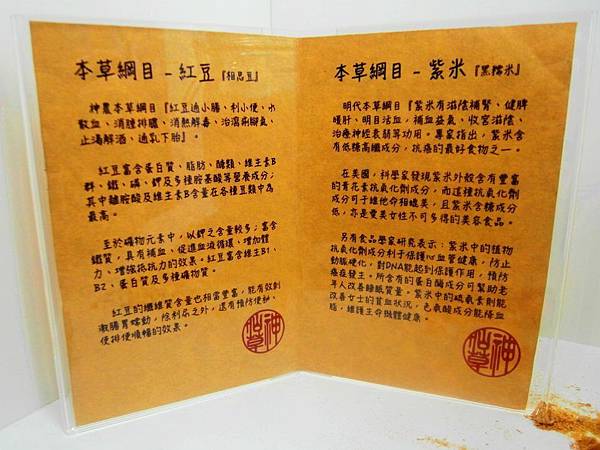 本草綱目-紅豆『相思豆』
神農本草綱目『紅豆通小腸、利小便、水
散血、消腫排膿、消熱解毒、治瀉痢腳氣、
止渴解酒、通乳下胎』。
紅豆富含蛋白質、脂肪、醣類、維生素B
群、鐵、磷、鉀及多種胺基酸等營養成分;
其中離胺酸及維生素B含量在各種豆類中為
最高。
至於礦物元素中,以鉀之含量較多;富含
鐵質,具有補血、促進血液循環、增加體
力、增強抵抗力的效果。紅豆富含維生B1、
B2、蛋白質及多種礦物質。
紅豆的纖維質含量也相當豐富,能有效刺
激腸胃蠕動,除利尿之外,還有預防便秘,
使排便順暢的效果。
本草綱目-紫米『黑糯米』
明代本草綱目『紫米有滋陰補腎、健脾
暖肝、明目活血,補血益氣、收宮滋陰、
治療神經衰弱等功用。專家指出,紫米含
有低糖高纖成分,抗癌的最好食物之一。
在美國,科學家發現紫米外殼含有豐富
的青花素抗氧化劑成分,而這種抗氧化劑
成分可于維他命相媲美,且紫米含糖成分
低,亦是愛美女性不可多得的美容食品。
另有食品學家研究表示:紫米中的植物
抗氧化劑成分利于保護心血管健康,防止
動脈硬化,對DNA能起到保護作用,預防
癌症發生。所含有的蛋白酶成分可幫助老
年人改善睡眠質量。紫米中的硫氨素則能
改善女士的貧血狀況,色氨酸成分能降血
脂,維護生命肢體健康。